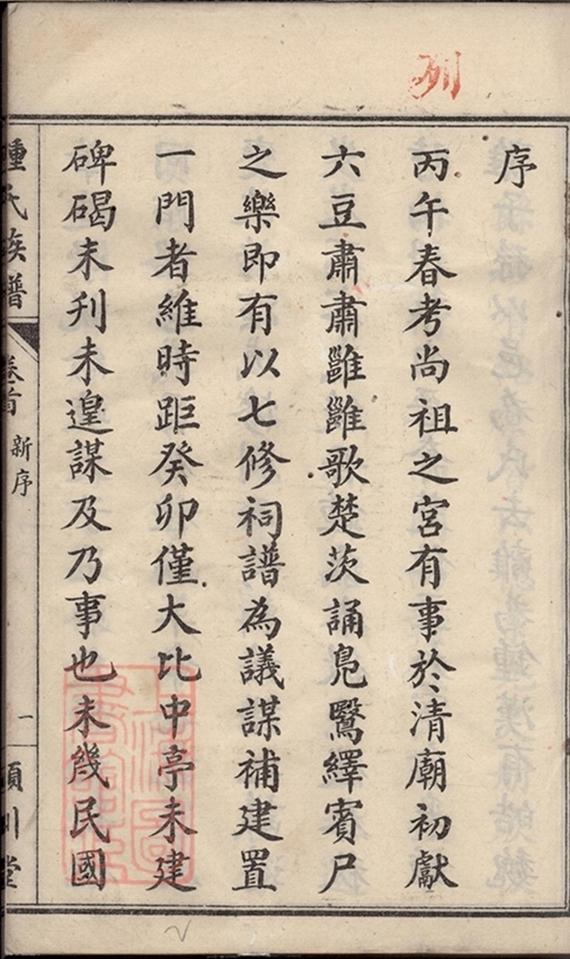 列
序
丙午春考尚祖之宮有事於清廟初獻
六豆肅肅雝雝歌楚茨誦鳧鷖繹賓尸
之樂即有以七修祠譜為議謀補建置
一門者維時距癸卯僅大比中亭未建
碑碣未刋未遑謀及乃事也未幾民國
鍾氏族譜
卷首
新序
一
潁川堂